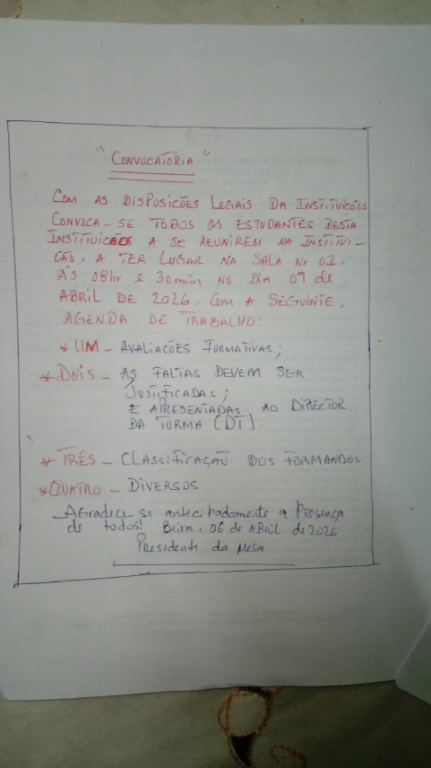 "CONVOCATÓRIA"
COM AS DISPOSIÇÕES LEGAIS DA INSTITUIÇÕES
CONVOCA-SE TODOS OS ESTUDANTES DESTA
INSTITUIÇÃO A SE REUNIREM NA INSTITUI-
ÇÃO, A TER LUGAR NA SALA Nr 01.
ÀS 08hr e 30min NO DIA 09 de
ABRIL DE 2026, COM A SEGUINTE,
AGENDA DE TRABALHO:
* UM - AVALIAÇÕES FORMATIVAS;
* DOIS - AS FALTAS DEVEM SER
JUSTIFICADAS;
E APRESENTADAS AO DIRECTOR
DA TURMA (DT).
* TRÊS - CLASSIFICAÇÃO DOS FORMANDOS
* QUATRO - DIVERSOS
- Agradece-se antecipadamente a Presença
de todos! Beira, 06 de ABRIL de 2026
Presidente da Mesa